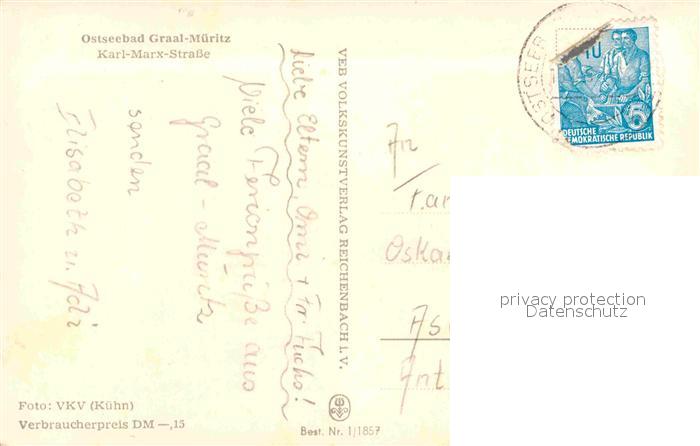 Ostseebad Graal-Müritz
Karl-Marx-Straße
Liebe Eltern, Omi + Fr. Fuchs!
Viele Feriengrüße aus
Graal-Müritz
senden
Elisabeth u. Adi
Foto: VKV (Kühn)
Verbraucherpreis DM —,15
VEB VOLKSKUNSTVERLAG REICHENBACH i. V.
Best. Nr. 1/1857
OSTSEEB
10
5
DEUTSCHE
DEMOKRATISCHE REPUBLIK
An
Fam
Oska
As
Ant
privacy protection
Datenschutz